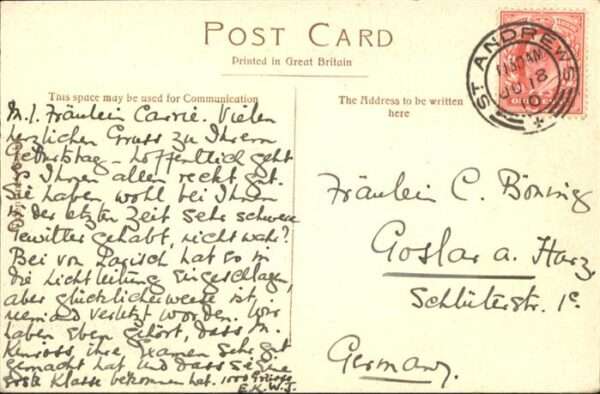 POST CARD
Printed in Great Britain
This space may be used for Communication
The Address to be written
here
ST ANDREWS
11.30AM
JU 18
M. l. Fräulein Carrie. Vielen
herzlichen Gruss zu Ihrem
Geburtstag – hoffentlich geht
es Ihnen allen recht gut.
Sie haben wohl bei Ihnen
in der letzten Zeit sehr schwere
Gewitter gehabt, nicht wahr?
Bei von hat es in
die Lichtleitung eingeschlagen,
aber glücklicherweise ist
niemand verletzt worden. Wir
haben eben gehört, dass M.
Kinross ihre Examen sehr gut
gemacht hat und dass sie eine
erste Klasse bekommen hat. 1000 Grüsse
E.K.W.J.
Fräulein C. Böning
Goslar a. Harz
Schlüterstr. 1c.
Germany.